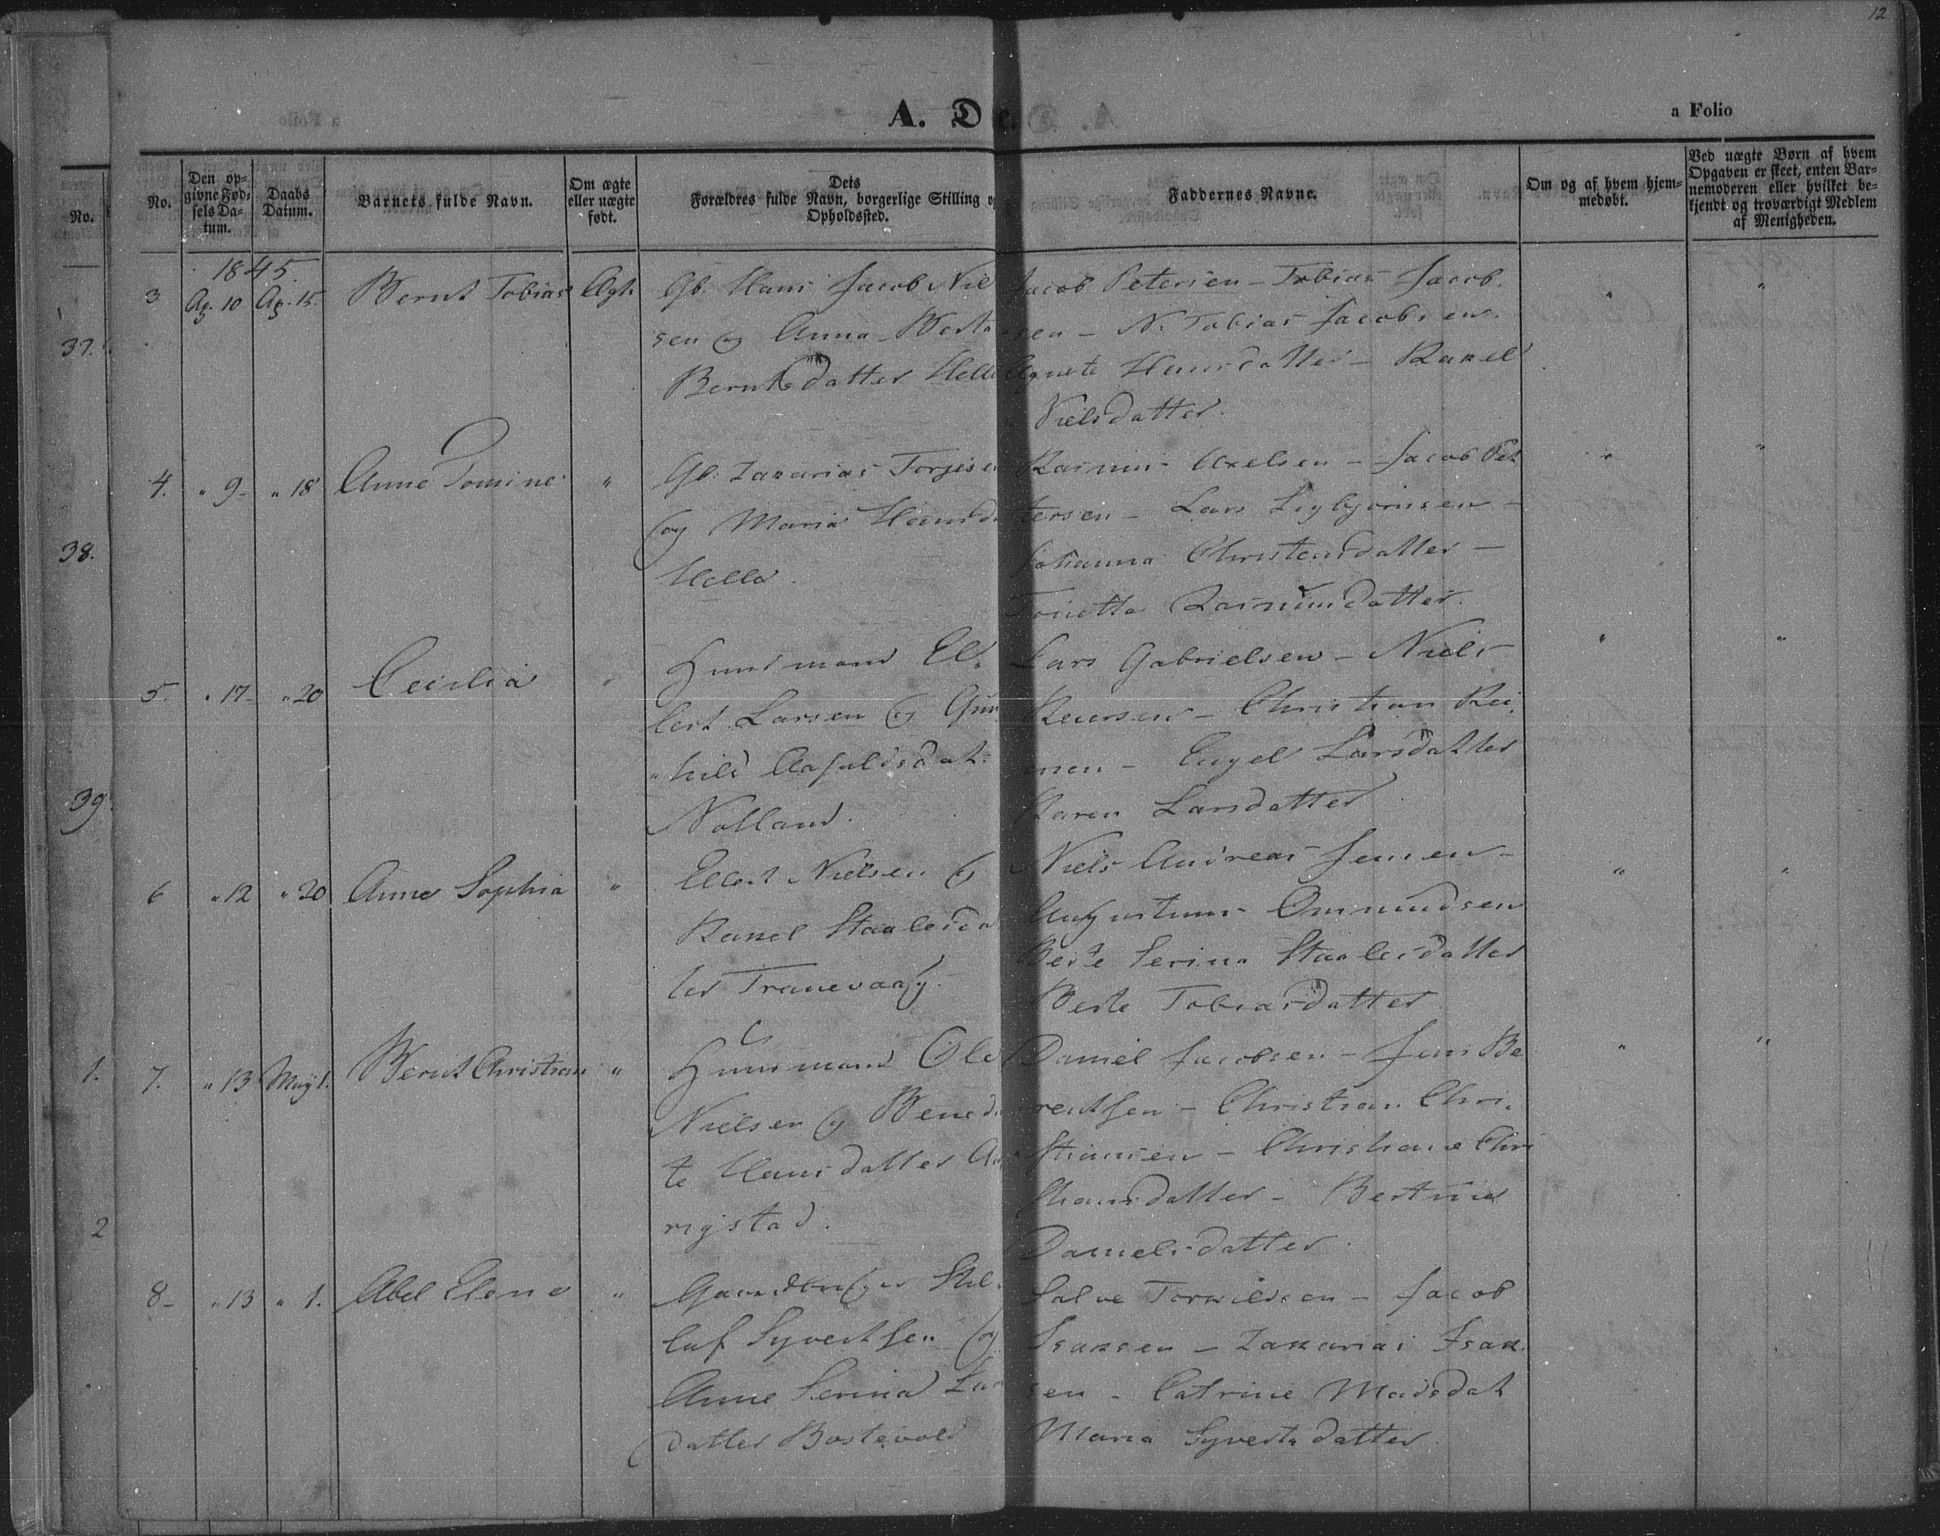 12
A. De
a Folio
No.
Den op-
givne Fød-
sels Da-
tum.
Daabs
Datum.
Barnets fulde Navn.
Om ægte
eller uægte
født.
Dets
Forældres fulde Navn, borgerlige Stilling og
Opholdssted.
Faddernes Navne.
Om og af hvem hjem-
medøbt.
Ved uægte Børn af hvem
Opgaven er skeet, enten Bar-
nemoderen eller hvilket be-
kjendt og troværdigt Medlem
af Menigheden.
No.
37.
38.
39
1.
2
1845.
3 Ap. 10 Ap. 15. Bernt Tobias Ægte
Gb. Hans Jacob Niel
sen og Anna
Berntsdatter Helle
Jacob Petersen – Tobias Jacob
sen – N. Tobias Jacobsen.
Agnete Hansdatter – Rakel
Nielsdatter.
4. " 9 - " 18 Anne Tomine "
Gb. Zakarias Torjesen
og Maria
Helle.
Rasmus Axelsen – Jacob Pet
tersen – Lars Sigbjørnsen –
Johanna Christensdatter –
Tonetta Rasmusdatter.
5. " 17 - " 20 Cecilia "
Huusmand El-
lert Larsen og Gun
hild
Lars Gabrielsen – Niels
Reiersen – Christian Rei
ersen – Engel Larsdatter
Karen Larsdatter
6 " 12 " 20 Anne Sophia "
Ellert Nielsen og
Rakel Staalesda
ter Tranevaag.
Niels Andreas Jensen –
Augustinus Ommundsen
Berte Serina Staalesdatter
Berte Tobiasdatter
7. " 13 May 1. Bernt Christian "
Huusmand Ole
Nielsen og Bened
te Hansdatter
Daniel Jacobsen – Jens Be
rentsen – Christian Chri-
stiansen – Christiane Chri
stiansdatter – Bertine
Danielsdatter.
8 - " 13 " 1. Abel Elene "
Gaardbruger
Syvertsen og
Anne Serina Lars
datter
Salve Torkildsen – Jacob
Isaksen – Zakarias Isak
sen – Catrine Madsdat
Maria Syvertsdatter